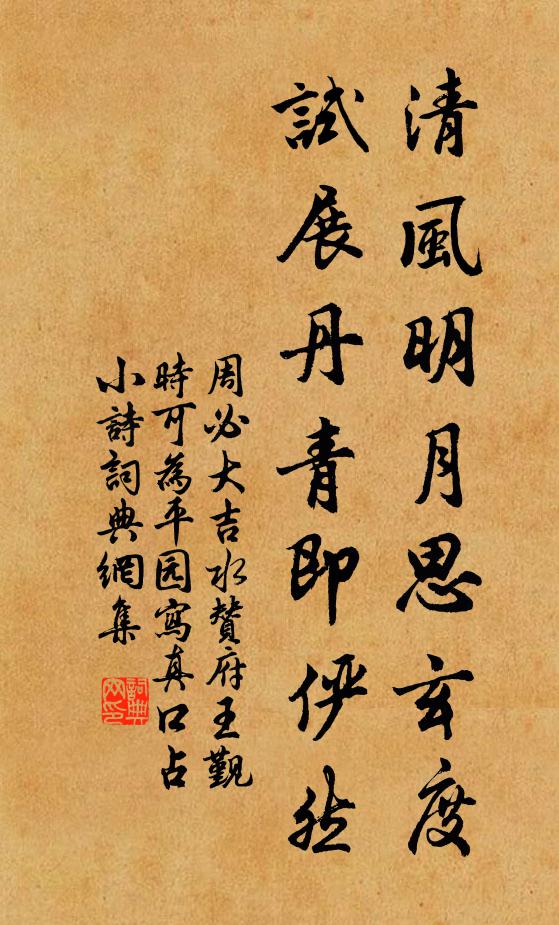 清風明月思玄度
試展丹青即俨然
周必大吉水贊府王觐
時可為平园寫真口占
小詩詞典網集
詞典
网印